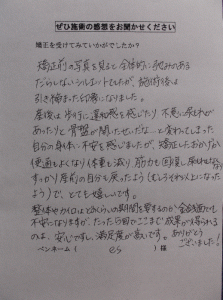 ぜひ施術の感想をお聞かせください
矯正を受けてみていかがでしたか?
矯正前の写真を見ると、全体的に歪みのある
だらしないシルエットでしたが、施術後は
引き締まった印象になりました。
産後は歩行に違和感を感じたり、不意に尿もれが
あったりと"骨盤が開いたせいだな…"と変わってしまった
自分の身体に不安を感じましたが、矯正したおかげで
便通もよくなり体重も減り、筋力も回復し尿もれもなく
すっかり産前の自分も戻ったよう(むしろそれ以上になった
ようで)、とても嬉しいです。
整体やカイロはどのくらいの期間を要するのか金銭面でも
不安になりますが、たった5回でここまで成果が得られる
のは、安心ですし、満足度が高いです。ありがとう
ございました!
ペンネーム( es )様